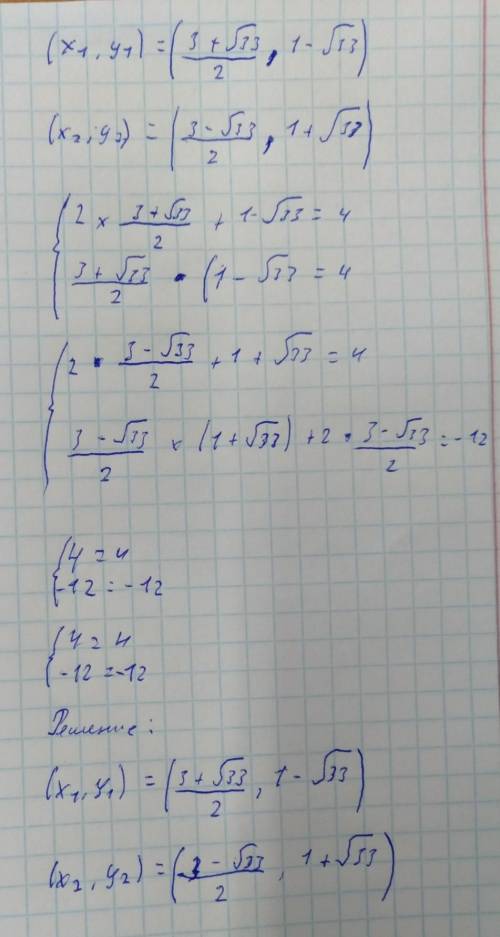 (x₁, y₁) = (3 + √33 / 2, 1 - √33)
(x₂, y₂) = (3 - √33 / 2, 1 + √33)
{ 2 × 3 + √33 / 2 + 1 - √33 = 4
3 + √33 / 2 · (1 - √33 = 4
{ 2 · 3 - √33 / 2 + 1 + √33 = 4
3 - √33 / 2 × (1 + √33) + 2 · 3 - √33 / 2 = -12
{ 4 = 4
-12 = -12
{ 4 = 4
-12 = -12
Решение:
(x₁, y₁) = (3 + √33 / 2, 1 - √33)
(x₂, y₂) = (3 - √33 / 2, 1 + √33)